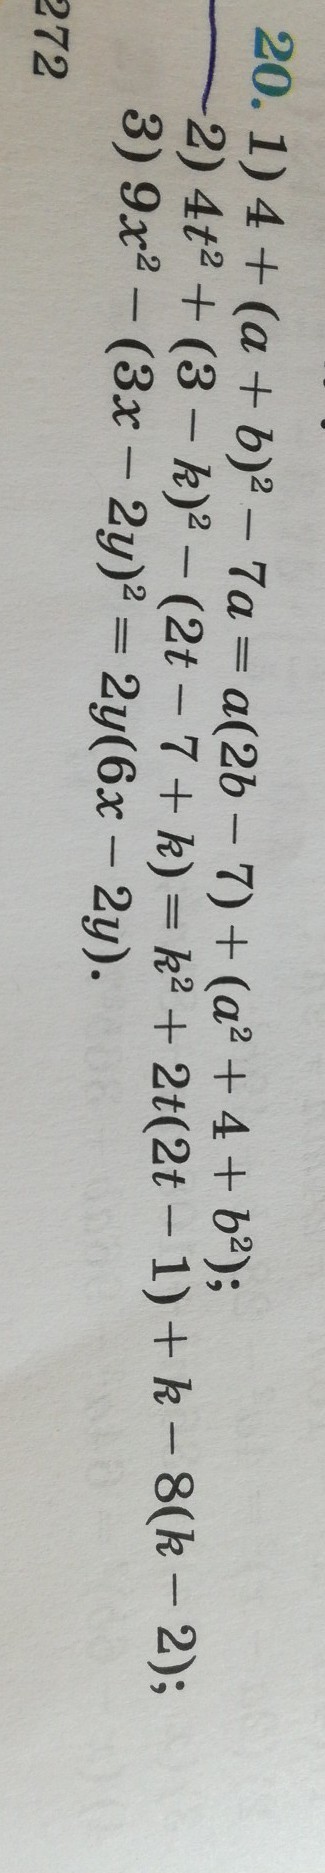 20. 1) 4 + (a + b)² − 7a = a(2b − 7) + (a² + 4 + b²);
2) 4t² + (3 − k)² − (2t − 7 + k) = k² + 2t(2t − 1) + k − 8(k − 2);
3) 9x² − (3x − 2y)² = 2y(6x − 2y).
272